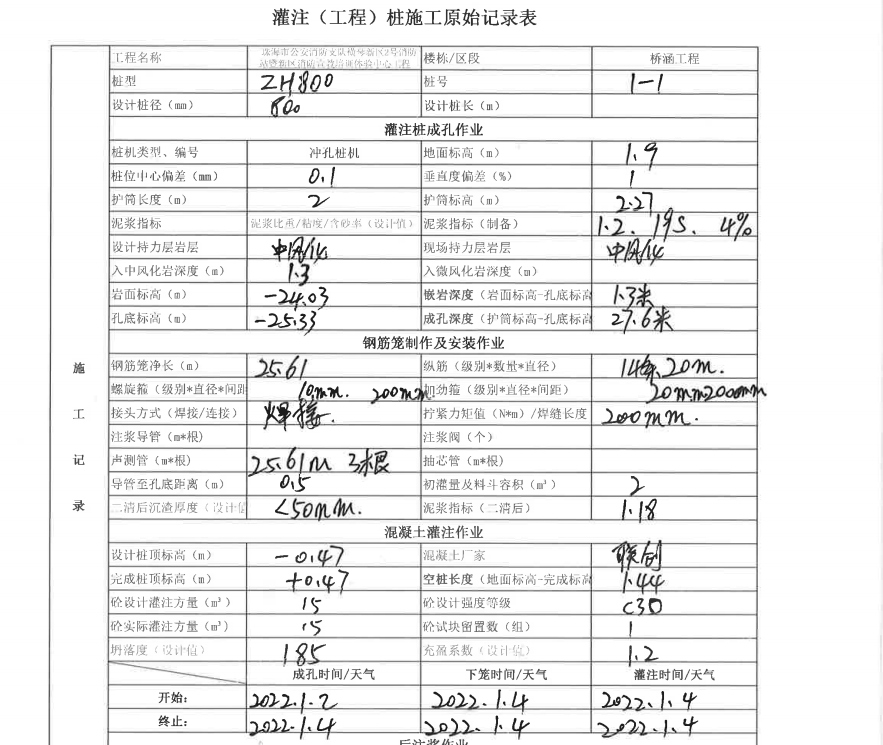 灌注（工程）桩施工原始记录表
工程名称 珠海市公安消防支队横琴新区2号消防站暨新区消防宣教培训体验中心工程 楼栋/区段 桥涵工程
桩型 ZH800 桩号 1-1
设计桩径（mm） 800 设计桩长（m）
灌注桩成孔作业
桩机类型、编号 冲孔桩机 地面标高（m） 1.9
桩位中心偏差（mm） 0.1 垂直度偏差（%） 1
护筒长度（m） 2 护筒标高（m） 2.27
泥浆指标 泥浆比重/粘度/含砂率（设计值） 泥浆指标（制备） 1.2、19S、4%
设计持力层岩层 中风化 现场持力层岩层 中风化
入中风化岩深度（m） 1.3 入微风化岩深度（m）
岩面标高（m） -24.03 嵌岩深度（岩面标高-孔底标高 1.3米
孔底标高（m） -25.33 成孔深度（护筒标高-孔底标高 27.6米
钢筋笼制作及安装作业
钢筋笼净长（m） 25.61 纵筋（级别*数量*直径） 14条 20mm.
螺旋箍（级别*直径*间距 10mm. 200mm. 加劲箍（级别*直径*间距） 20mm2000mm
接头方式（焊接/连接） 焊接. 拧紧力矩值（N*m）/焊缝长度 200mm.
注浆导管（m*根） 注浆阀（个）
声测管（m*根） 25.61m 3根 抽芯管（m*根）
导管至孔底距离（m） 0.5 初灌量及料斗容积（m³） 2
二清后沉渣厚度（设计值 <50mm. 泥浆指标（二清后） 1.18
混凝土灌注作业
设计桩顶标高（m） -0.47 混凝土厂家 联创
完成桩顶标高（m） +0.47 空桩长度（地面标高-完成标高 1.44
砼设计灌注方量（m³） 15 砼设计强度等级 C30
砼实际灌注方量（m³） 15 砼试块留置数（组） 1
坍落度（设计值） 185 充盈系数（设计值） 1.2
成孔时间/天气 下笼时间/天气 灌注时间/天气
开始： 2022.1.2 2022.1.4 2022.1.4
终止： 2022.1.4 2022.1.4 2022.1.4
后注浆作业
施工记录